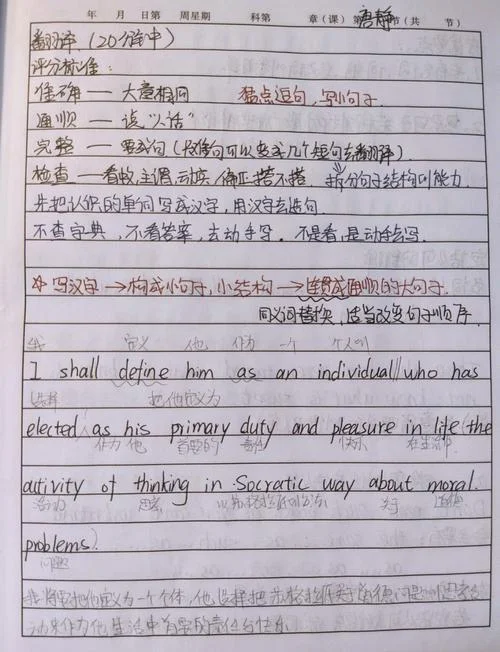 年 月 日第 周星期 科第 章(课) 第 节(共 节)
唐静
翻译. (20分钟中)
评分标准:
准确 —— 大意相同 猫点逗句, 写小句子.
通顺 —— 说"人话"
完整 —— 要成句 (较难句可以变成几个短句去翻译).
检查 —— 看时, 主谓, 动宾, 偏正搭不搭. 拆分句子结构的能力.
先把认识的单词写成汉字, 用汉字去造句.
不查字典, 不看答案, 去动手写. 不是看, 是动手去写.
☆ 写汉字 → 构成小句子, 小结构 → 连贯成通顺的大句子.
同义词替换, 适当改变句子顺序.
我 定义 他 作为 一个 个人
I shall define him as an individual// who has
选择 把他定义为
elected as his primary duty and pleasure in life the
作为他 首要的 责任 快乐 在生命中
activity of thinking in Socratic way about moral
活动 思考 以苏格拉底的方法 关于 道德
problems).
问题
我将把他定义为一个个体, 他选择把苏格拉底关于道德问题的思考活
动来作为他生活中首要的责任与快乐